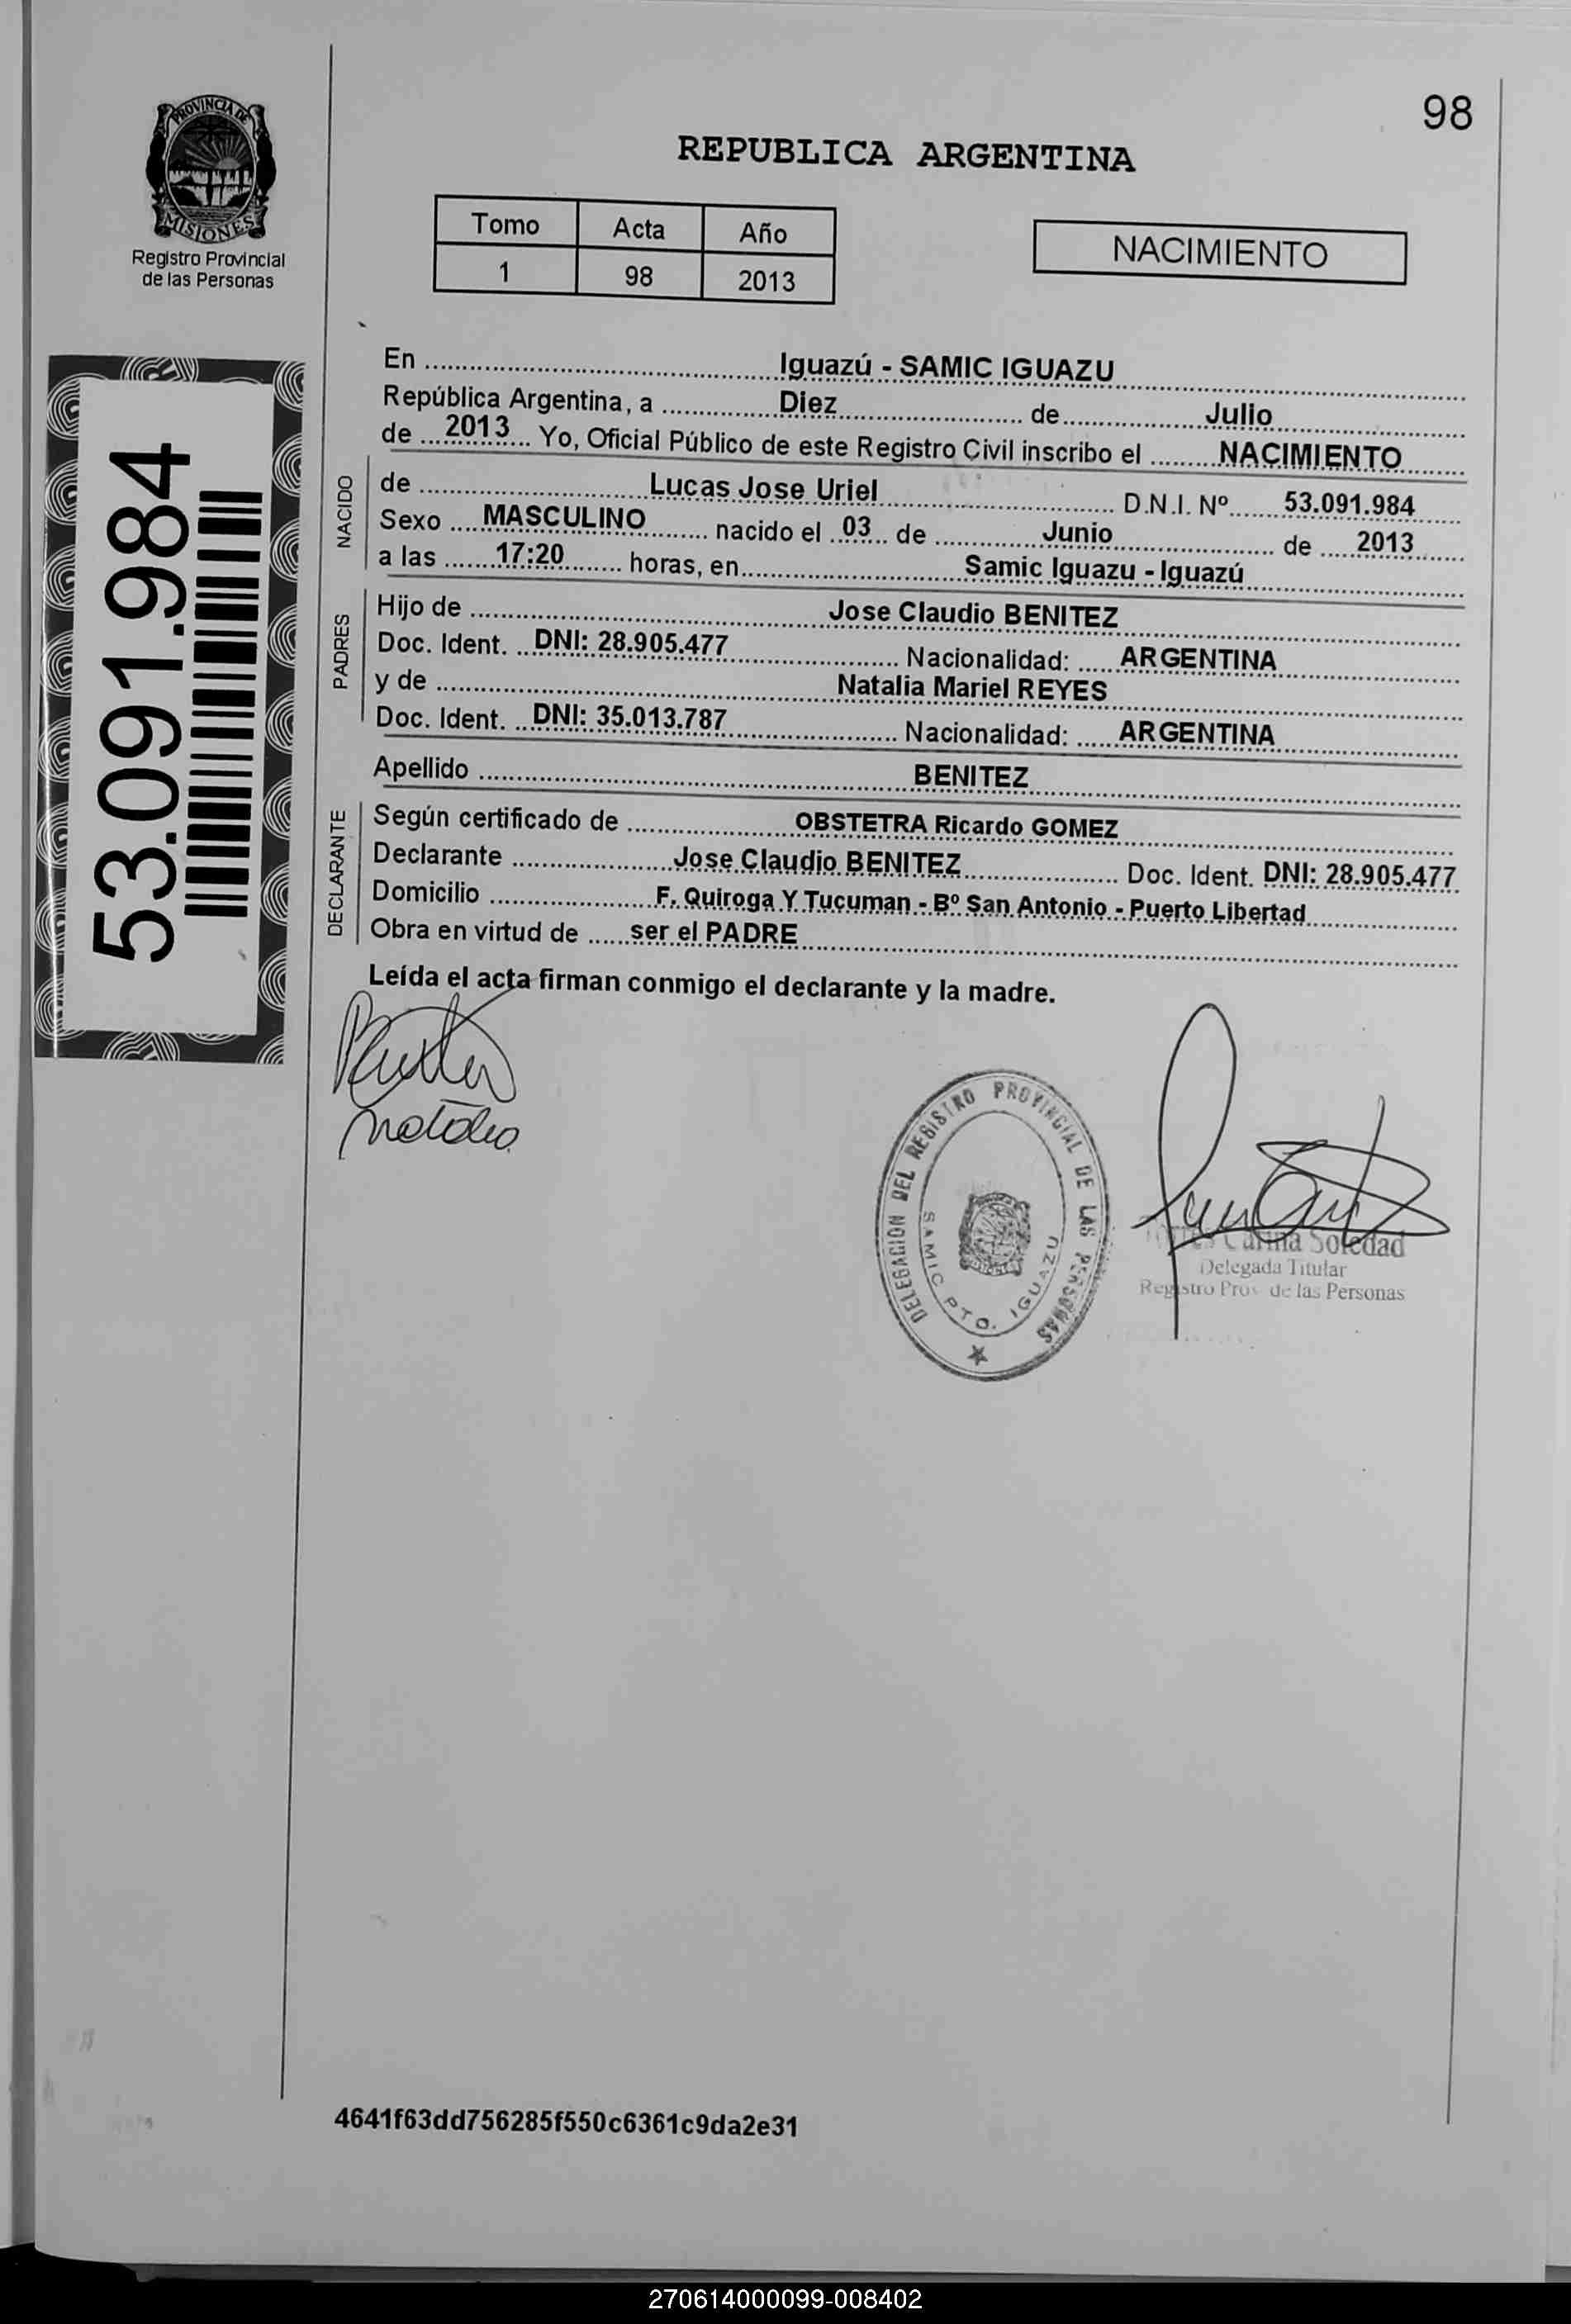 98
PROVINCIA DE
MISIONES
Registro Provincial
de las Personas
REPUBLICA ARGENTINA
Tomo Acta Año
1 98 2013
NACIMIENTO
53.091.984
En Iguazú - SAMIC IGUAZU
República Argentina, a Diez de Julio
de 2013 Yo, Oficial Público de este Registro Civil inscribo el NACIMIENTO
NACIDO
de Lucas Jose Uriel D.N.I. Nº 53.091.984
Sexo MASCULINO nacido el 03 de Junio de 2013
a las 17:20 horas, en Samic Iguazu - Iguazú
PADRES
Hijo de Jose Claudio BENITEZ
Doc. Ident. DNI: 28.905.477 Nacionalidad: ARGENTINA
y de Natalia Mariel REYES
Doc. Ident. DNI: 35.013.787 Nacionalidad: ARGENTINA
Apellido BENITEZ
DECLARANTE
Según certificado de OBSTETRA Ricardo GOMEZ
Declarante Jose Claudio BENITEZ Doc. Ident. DNI: 28.905.477
Domicilio F. Quiroga Y Tucuman - Bº San Antonio - Puerto Libertad
Obra en virtud de ser el PADRE
Leída el acta firman conmigo el declarante y la madre.
DELEGACION DEL REGISTRO PROVINCIAL DE LAS PERSONAS
SAMIC PTO. IGUAZU
Carina Soledad
Delegada Titular
Registro Prov. de las Personas
4641f63dd756285f550c6361c9da2e31
270614000099-008402